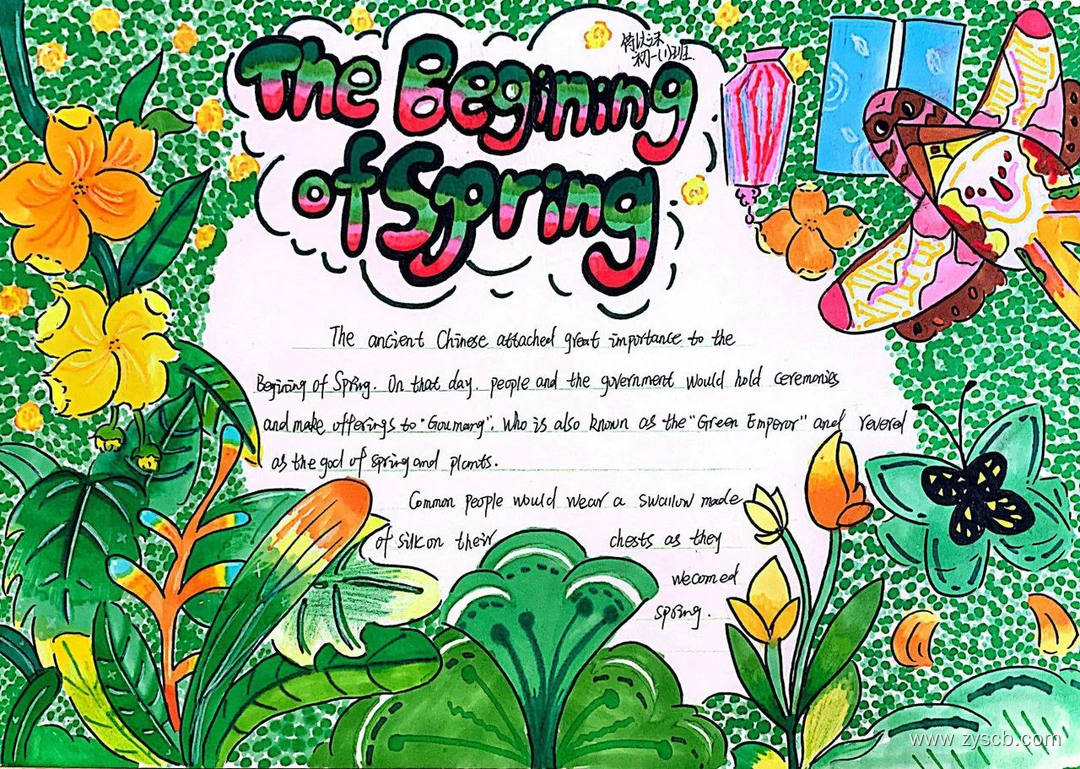 The Begining
of Spring
初一(1)班
The ancient Chinese attached great importance to the
Begining of Spring. On that day, people and the government would hold ceremonies
and make offerings to "Goumang", who is also known as the "Green Emperor" and revered
as the god of spring and plants.
Common people would wear a swallow made
of silk on their chests as they
wecomed
spring.
www.zyscb.com